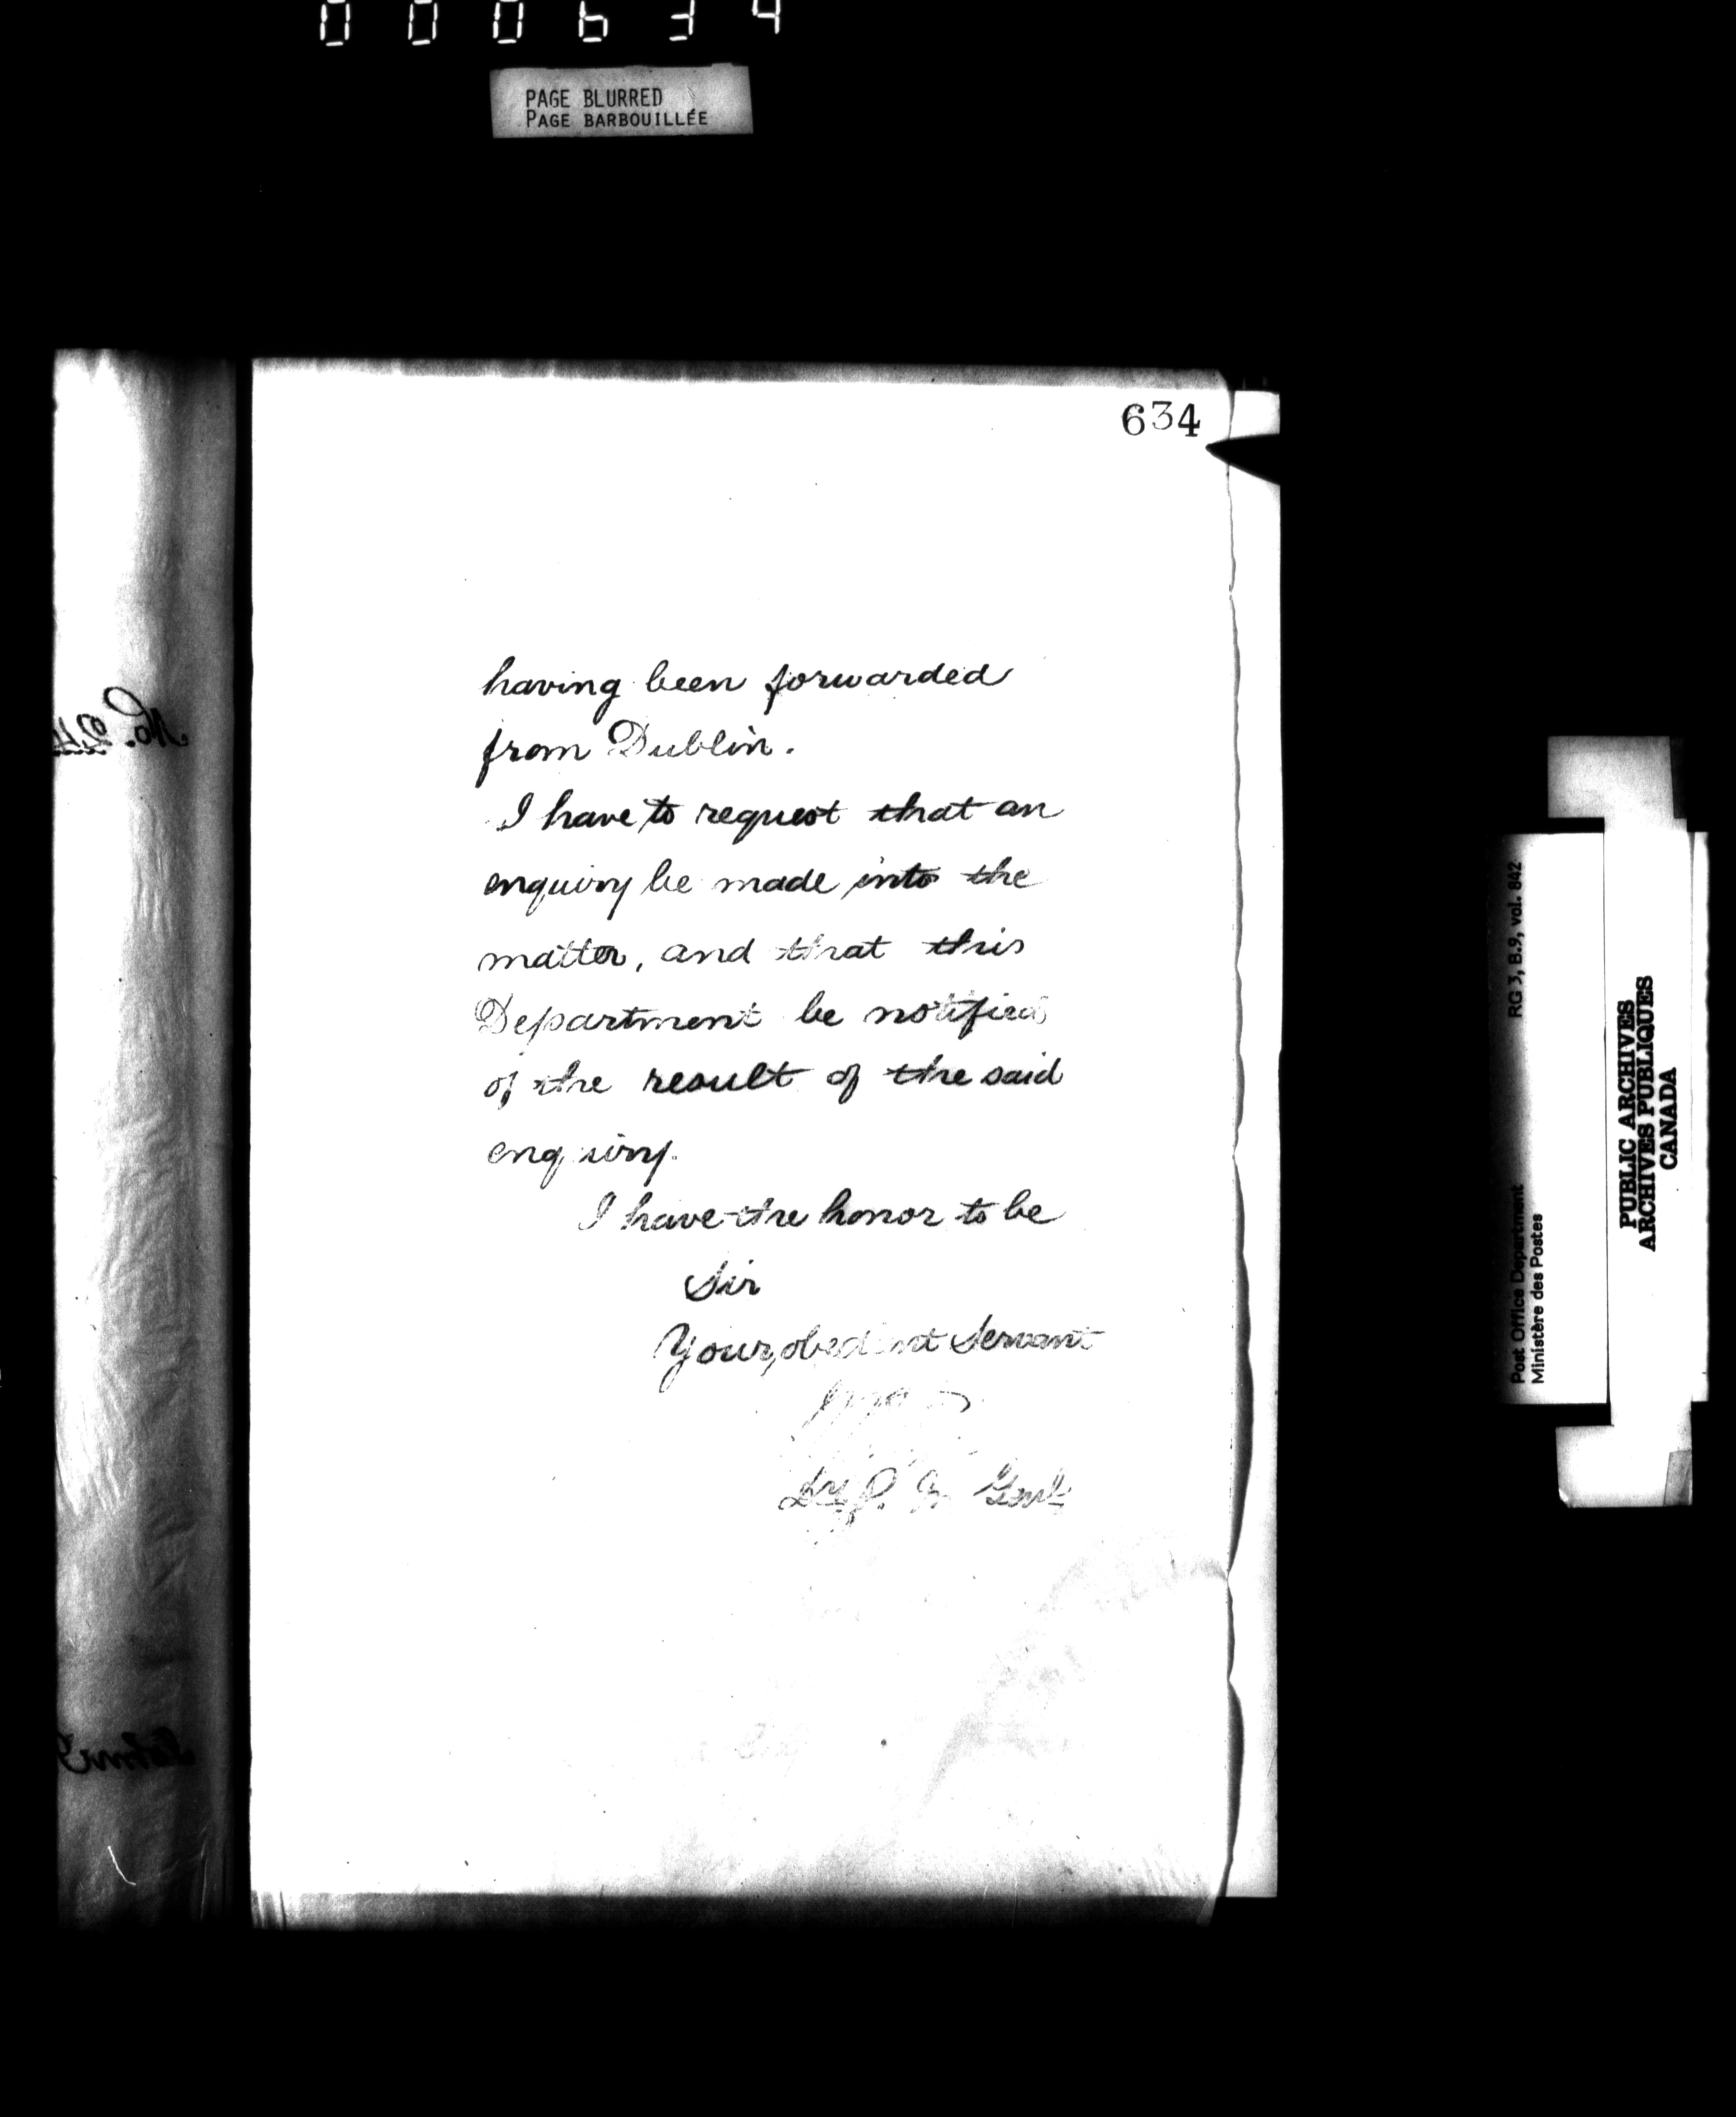 000634
PAGE BLURRED
PAGE BARBOUILLÉE
634
having been forwarded
from Dublin.
I have to request that an
enquiry be made into the
matter, and that this
Department be notified
of the result of the said
enquiry.
I have the honor to be
Sir
Your obedient Servant
Dy P. M. Genl
No.
RG 3, B.9, vol. 842
Post Office Department
Ministère des Postes
PUBLIC ARCHIVES
ARCHIVES PUBLIQUES
CANADA